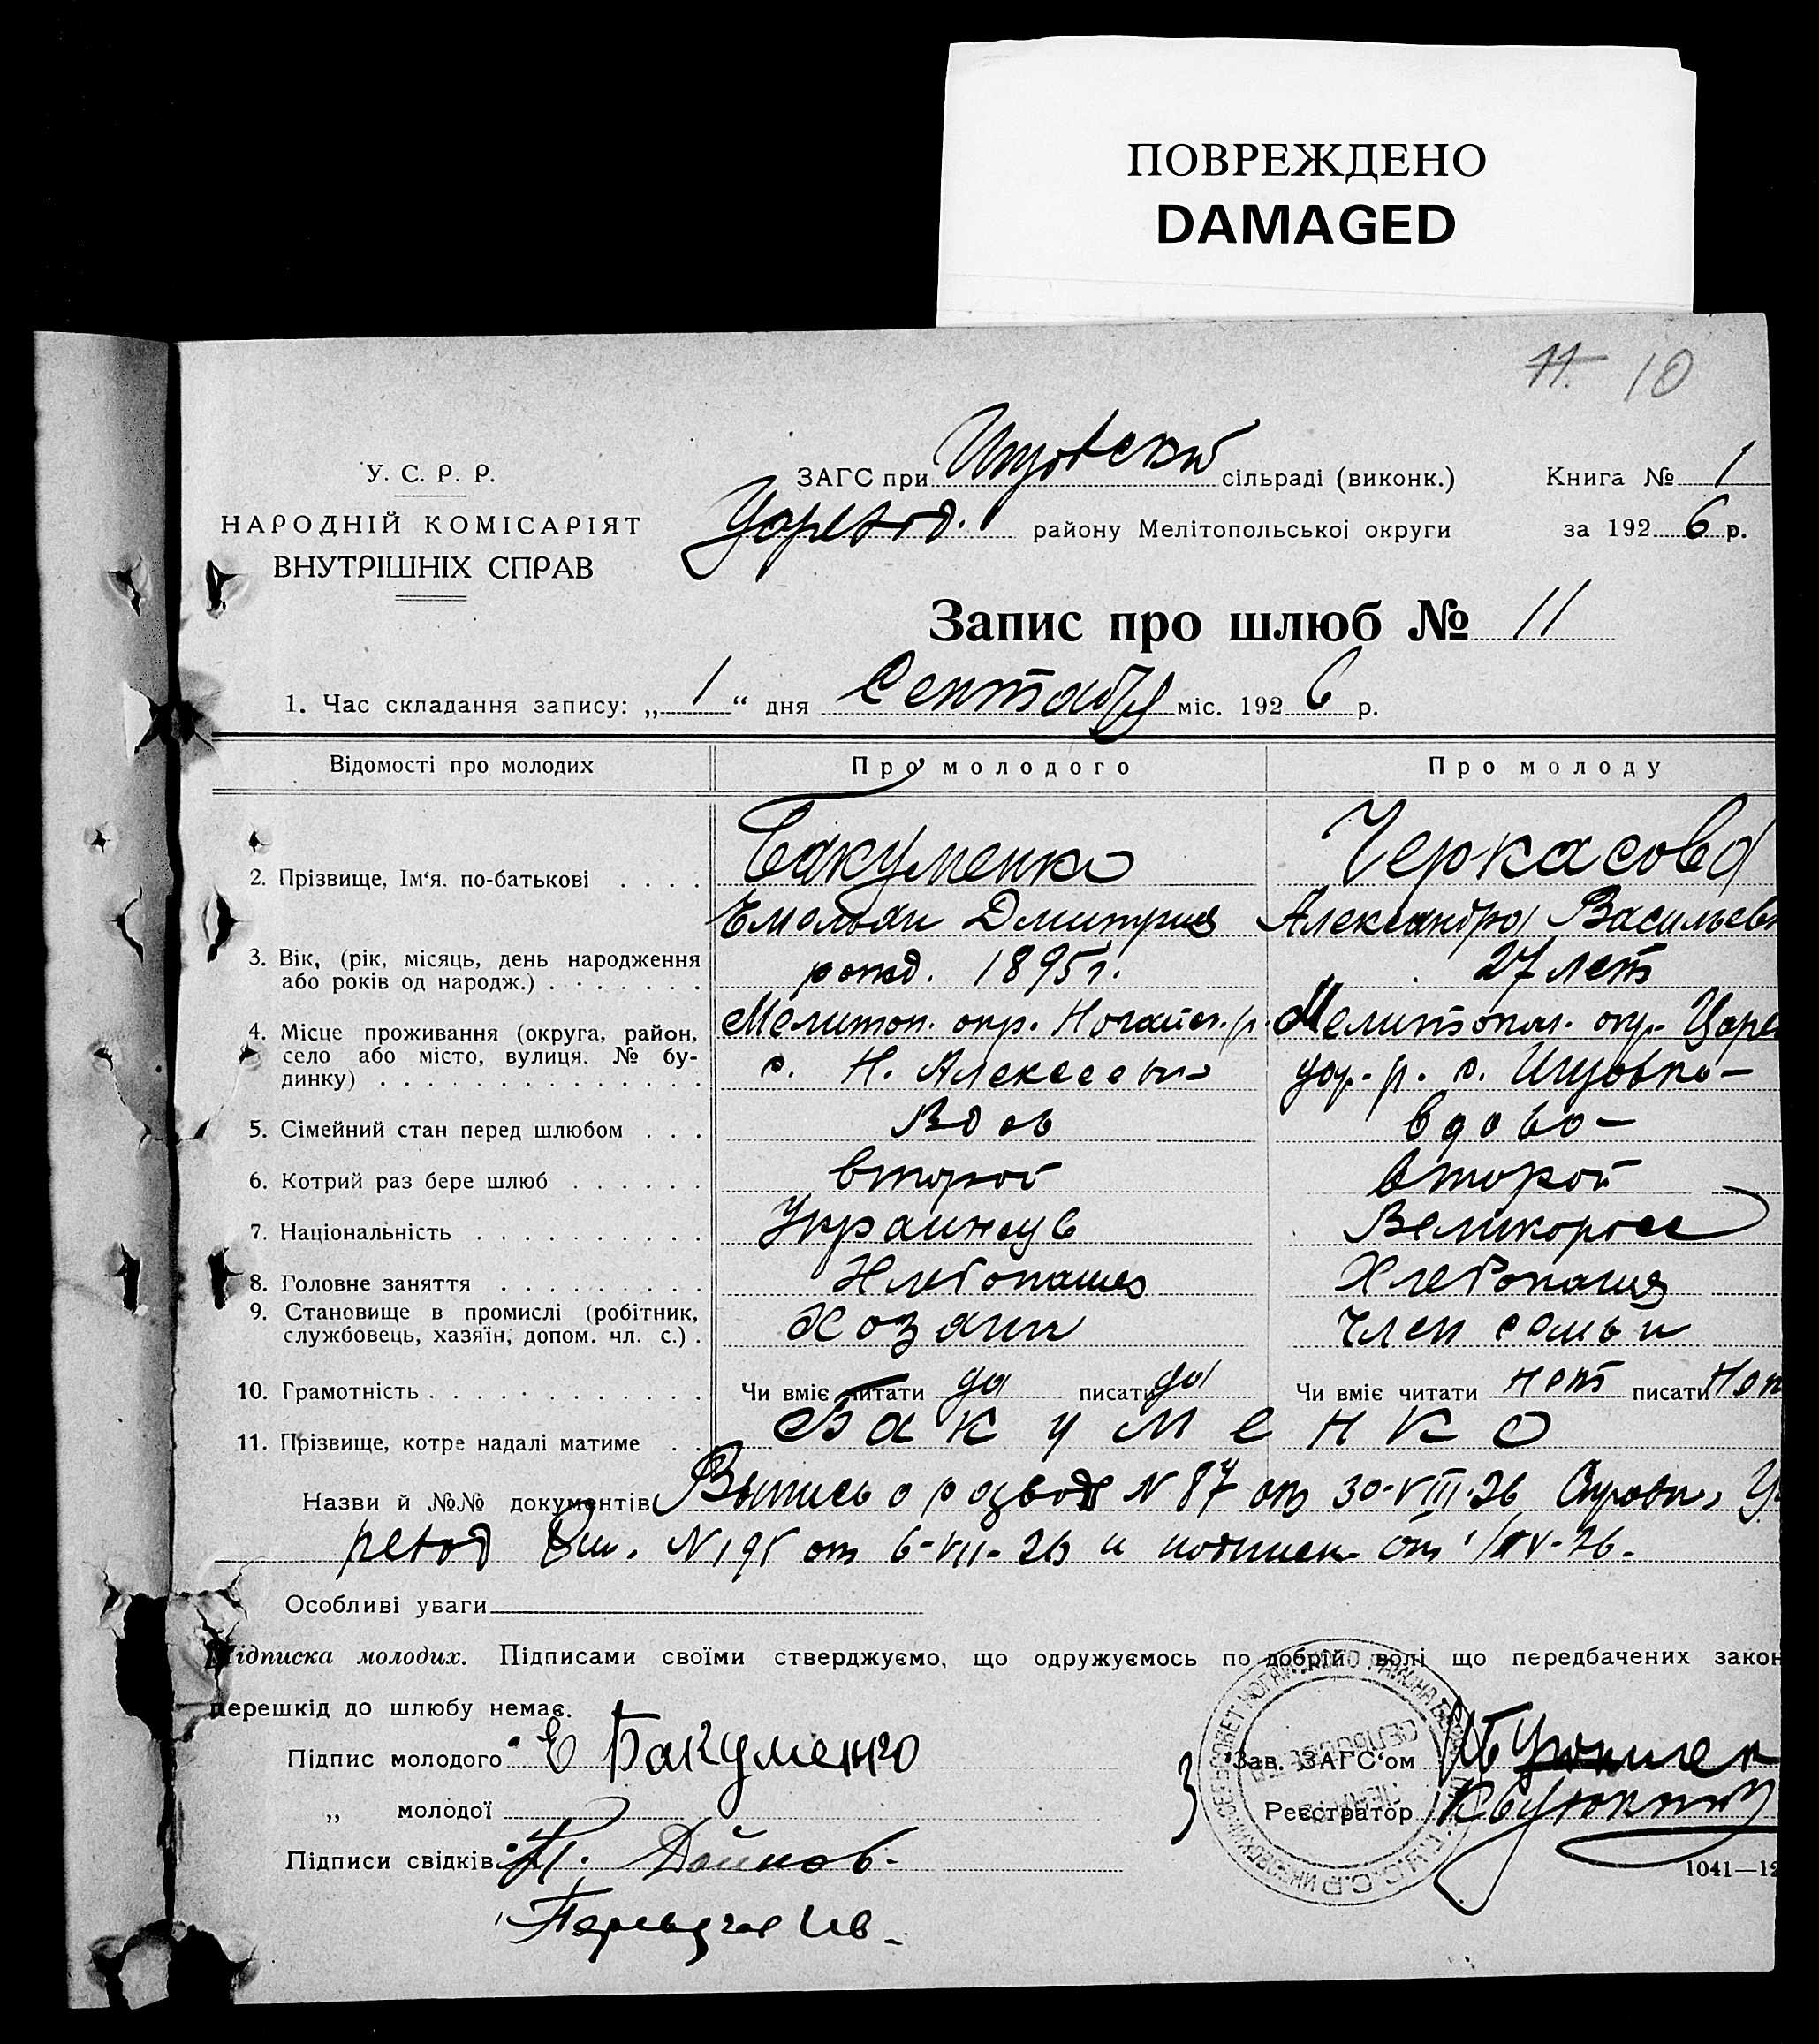 ПОВРЕЖДЕНО
DAMAGED
11 10
У. С. Р. Р.
НАРОДНІЙ КОМІСАРІЯТ
ВНУТРІШНІХ СПРАВ
ЗАГС при сільраді (виконк.) Книга № 1
району Мелітопольської округи за 1926 р.
Запис про шлюб № 11
1. Час складання запису: „ 1 “ дня Сентября міс. 1926 р.
Відомості про молодих Про молодого Про молоду
2. Прізвище, Ім‘я. по-батькові . . . . Бакуменко Черкасова
Емельян Дмитриев Александра Васильев
3. Вік, (рік, місяць, день народження
або років од народж.) . . . . . . . рожд. 1895 г. 27 лет
4. Місце проживання (округа, район,
село або місто, вулиця. № бу-
динку) . . . . . . . . . . . . . .
Мелитоп. окр. Ногайск. р. Мелитопол. окр. Царе
с. Н. Алексеевка р. с.
5. Сімейний стан перед шлюбом . . . Вдов вдова
6. Котрий раз бере шлюб . . . . . . второй второй
7. Національність . . . . . . . . . . Украинец Великоросс
8. Головне заняття . . . . . . . . . Хлебопашец Хлебопашец
9. Становище в промислі (робітник,
службовець, хазяїн, допом. чл. с.) . Хозяин член семьи
10. Грамотність . . . . . . . . . . . . Чи вміє читати да писати да Чи вміє читати нет писати нет
11. Прізвище, котре надалі матиме . . Бакуменко
Назви й №№ документів Выпись о разводе N 87 от 30-VIII-26
N 195 от 6-VII-26 и от
Особливі уваги
Підписка молодих. Підписами своїми стверджуємо, що одружуємось по добрій волі що передбачених закон
перешкід до шлюбу немає.
Підпис молодого Е Бакуменко Зав. ЗАГС‘ом
„ молодої Реєстратор
Підписи свідків
1041—12